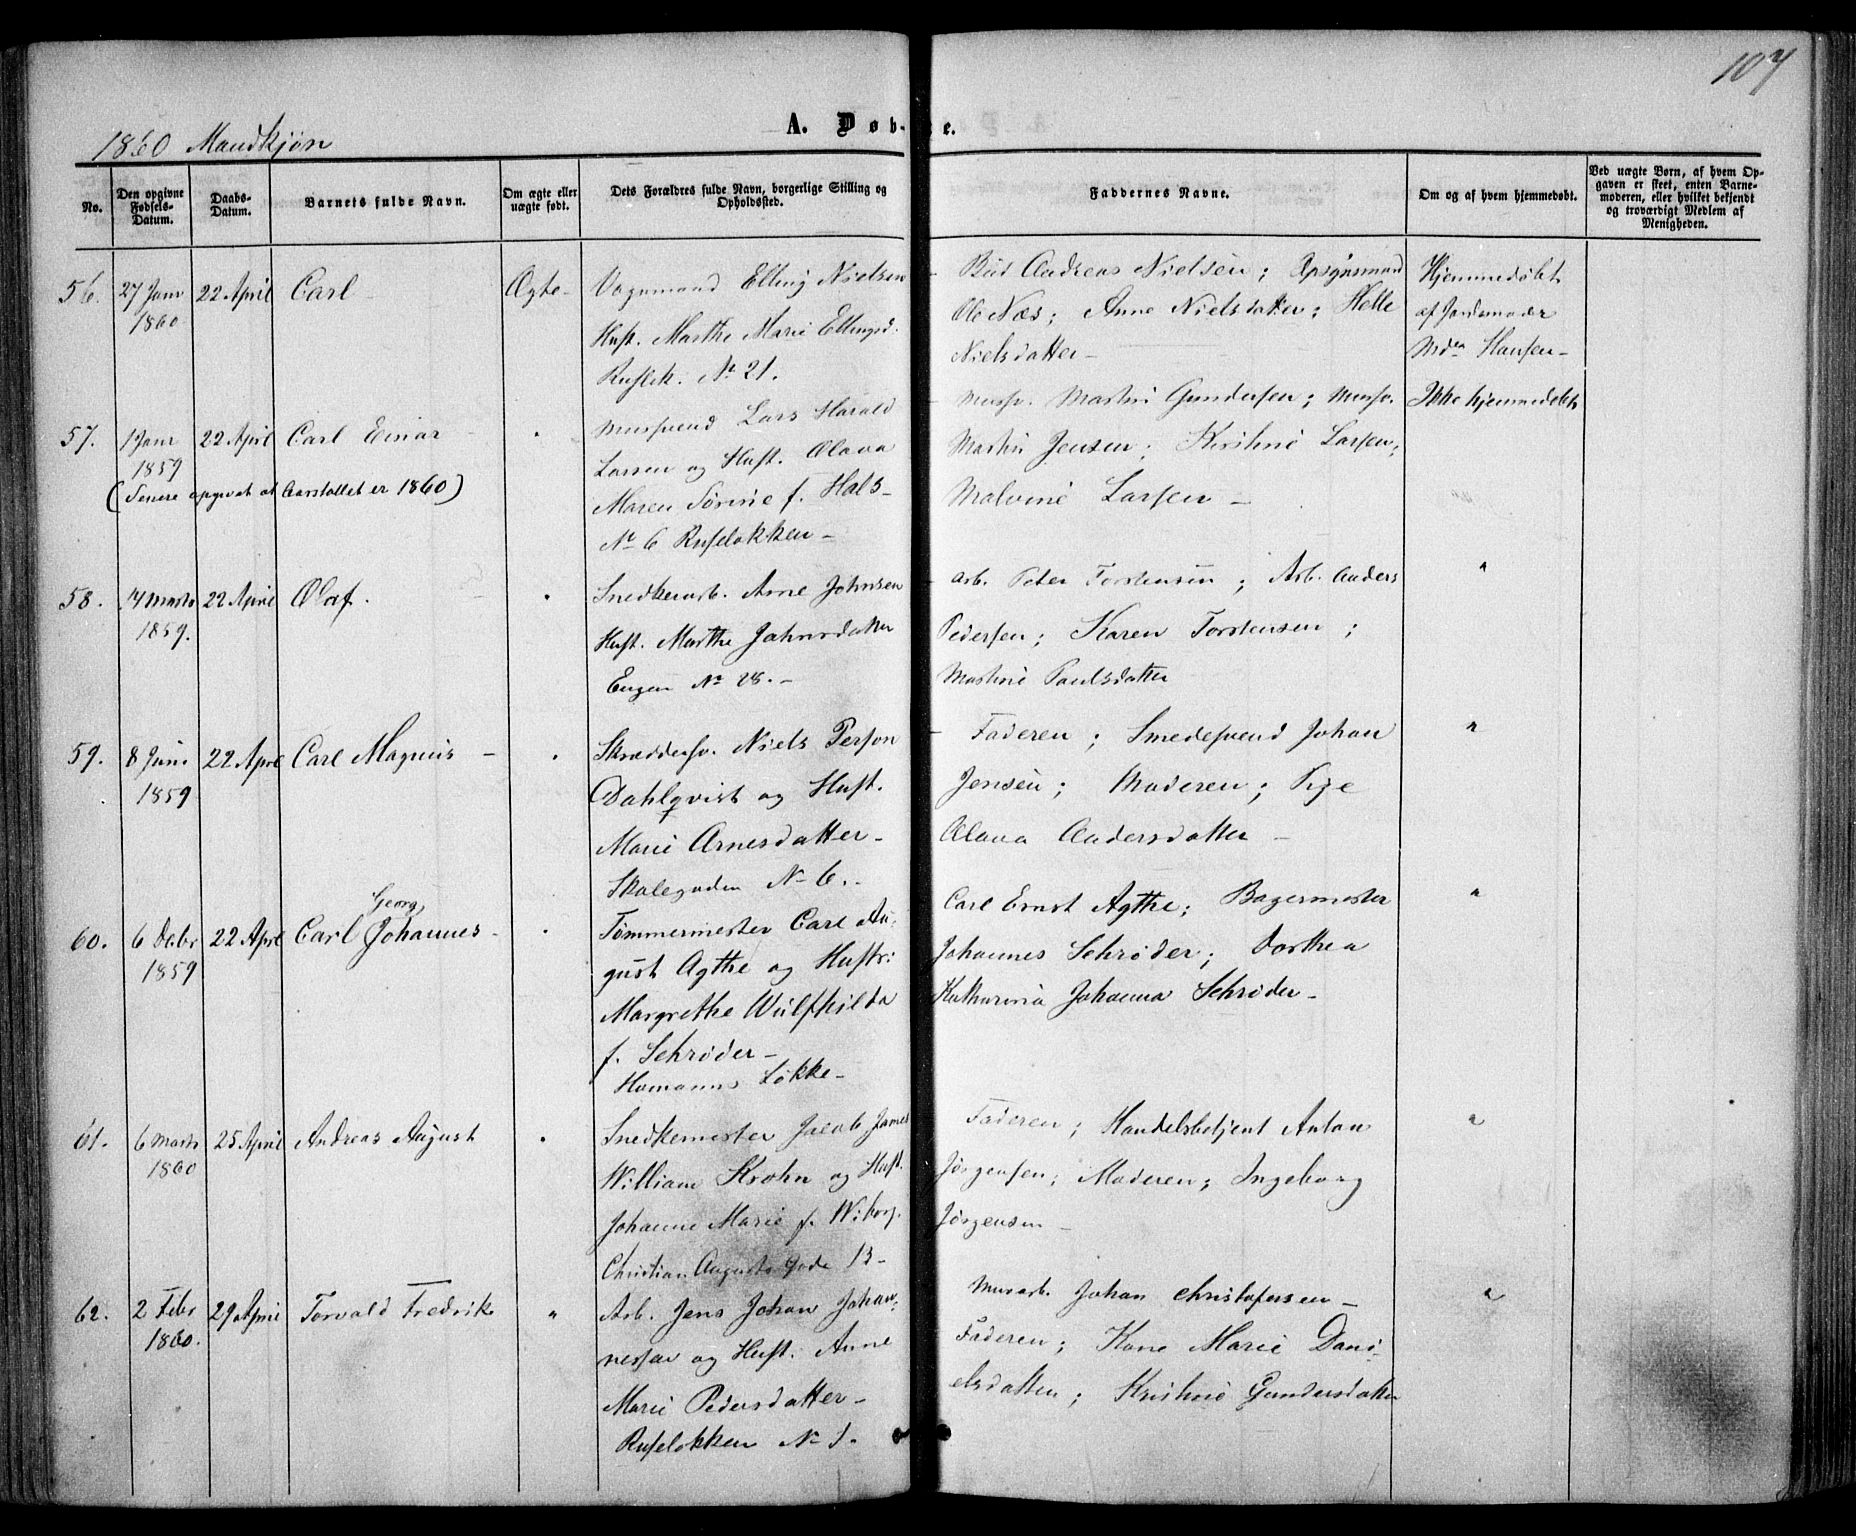 107
1860 Mandkjøn
A. Døb-te.
No.
Den opgivne Fødsels-Datum.
Daabs-Datum.
Barnets fulde Navn.
Om ægte eller uægte født.
Dets Forældres fulde Navn, borgerlige Stilling og Opholdssted.
Faddernes Navne.
Om og af hvem hjemmedøbt.
Ved uægte Børn, af hvem Op-
gaven er skeet, enten Barne-
moderen, eller hvilket bekjendt
og troværdigt Medlem af
Menigheden.
56. 27 Janr 1860 22 April Carl - Ægte -
Vognmand Elling Nielsen
Hust. Marthe Marie Ellingsd.
Ruslk. No 21.
Bud Andreas Nielsen; Opsynsmand
Ole Næs; Anne Nielsdatter; Helle
Nielsdatter -
Hjemmedøbt
af Jordemoder
Mdm Hansen -
57. 1 Janr 1859 22 April Carl Einar - "
(Senere opgivet at Aarstallet er 1860)
Mursvend Lars Harald
Larsen og Hust. Olava
Maren Sørine f. Hals -
No 6 Ruseløkken -
Mursv. Martin Gundersen; Mursv.
Martin Jensen; Kirstine Larsen;
Malvine Larsen -
Ikke hjemmedøbt
58. 14 Marts 1859. 22 April Olaf. "
Snedkerarb. Arne Johnsen
Hust. Marthe Johnsdatter
Engen No 28. -
Arb. Peter Torstensen; Arb. Anders
Pedersen; Karen Torstensen;
Martine Paulsdatter
"
59. 8 Juni 1859 22 Aprl Carl Magnus - "
Skræddersv. Niels Person
Dahlqvist og Hust.
Marie Arnesdatter -
Skolegaden No 6. -
Faderen; Smedesvend Johan
Jensen; Moderen; Pige
Olava Andersdatter -
"
60. 6 Debr 1859 22 Aprl Carl Georg Johannes - "
Tømmermester Carl Au-
gust Agthe og Hustr:
Margrethe Wulfhilda
f. Schrøder -
Homanns Løkke -
Carl Ernst Agthe; Bagermester
Johannes Schrøder; Dorthea
Katharina Johanna Schrøder -
"
61. 6 Marts 1860 25 April Andreas August "
Snedkermester Jacob James
William Krohn og Hust.
Johanne Marie f. Wiborg.
Christian Augusts Gade 13 -
Faderen; Handelsbetjent Anton
Jørgensen; Moderen; Ingeborg
Jørgensen -
"
62. 2 Febr 1860. 29 April Torvald Fredrik "
Arb. Jens Johan Johan-
nessen og Hust. Anne
Marie Pedersdatter -
Ruseløkken No 1.
Murarb. Johan Christofersen -
Faderen; Kone Marie Dani-
elsdatter; Kristine Gundersdatter
"